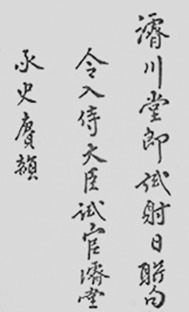 濬川堂即試射日聯句
令入侍大臣試官濟堂
承史賡韻